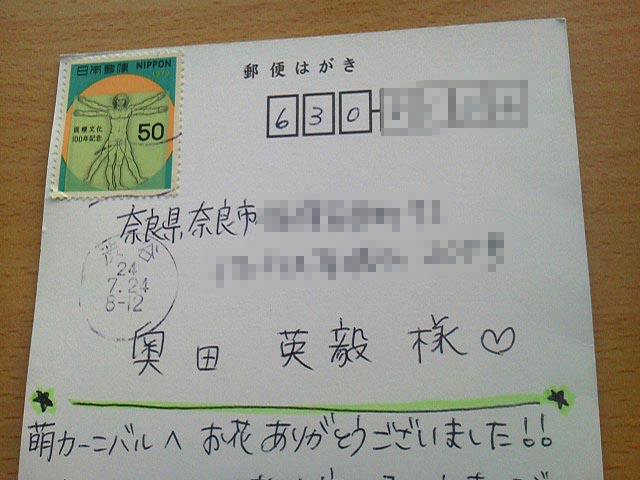 日本郵便 NIPPON
1979
医療文化
100年記念
50
郵便はがき
630-
奈良県奈良市
24
7.24
8-12
奥田 英毅 様♡
萌カーニバルへ お花ありがとうございました!!